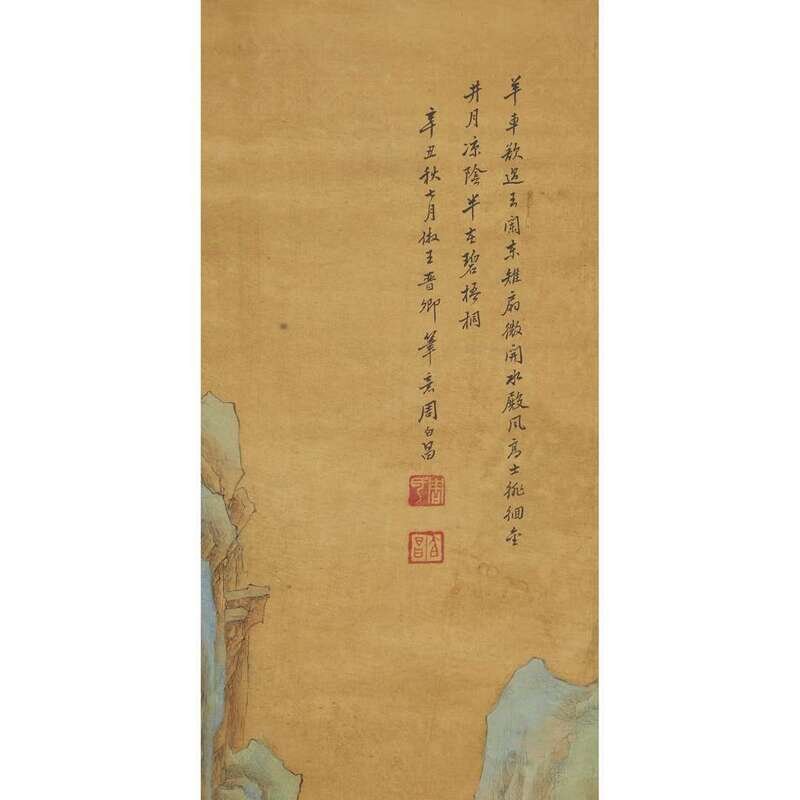 羊車歘過玉闌東雉扇微開水殿風高士徘徊金
井月凉陰半在碧梧桐
辛丑秋七月倣王晋卿筆意周白昌